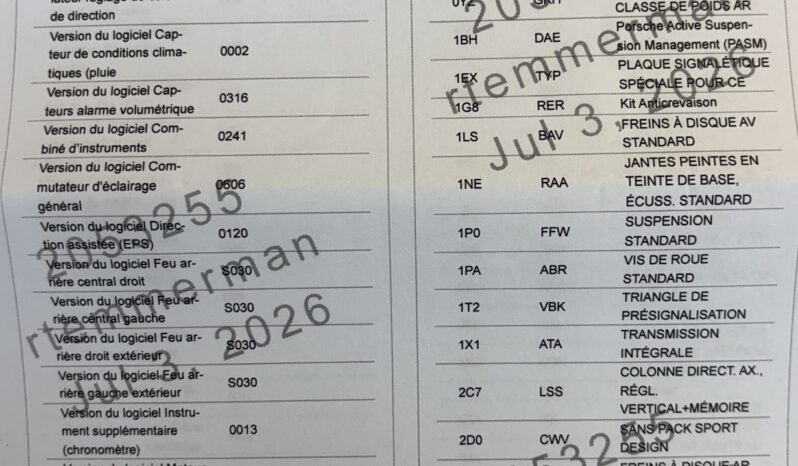 de direction
Version du logiciel Cap-
teur de conditions clima-
tiques (pluie
0002
Version du logiciel Cap-
teurs alarme volumétrique
0316
Version du logiciel Com-
biné d'instruments
0241
Version du logiciel Com-
mutateur d'éclairage
général
0606
Version du logiciel Direc-
tion assistée (EPS)
0120
Version du logiciel Feu ar-
rière central droit
S030
Version du logiciel Feu ar-
rière central gauche
S030
Version du logiciel Feu ar-
rière droit extérieur
S030
Version du logiciel Feu ar-
rière gauche extérieur
S030
Version du logiciel Instru-
ment supplémentaire
(chronomètre)
0013
2053255
rtemmerman
Jul 3, 2026
CLASSE DE POIDS AR
1BH DAE Porsche Active Suspen-
sion Management (PASM)
1EX TYP PLAQUE SIGNALÉTIQUE
SPÉCIALE POUR CE
1G8 RER Kit Anticrevaison
1LS BAV FREINS À DISQUE AV
STANDARD
1NE RAA JANTES PEINTES EN
TEINTE DE BASE,
ÉCUSS. STANDARD
1P0 FFW SUSPENSION
STANDARD
1PA ABR VIS DE ROUE
STANDARD
1T2 VBK TRIANGLE DE
PRÉSIGNALISATION
1X1 ATA TRANSMISSION
INTÉGRALE
2C7 LSS COLONNE DIRECT. AX.,
RÉGL.
VERTICAL+MÉMOIRE
2D0 CWV SANS PACK SPORT
DESIGN
FREINS À DISQUE AR
rtemmerman
Jul 3, 2026
53255